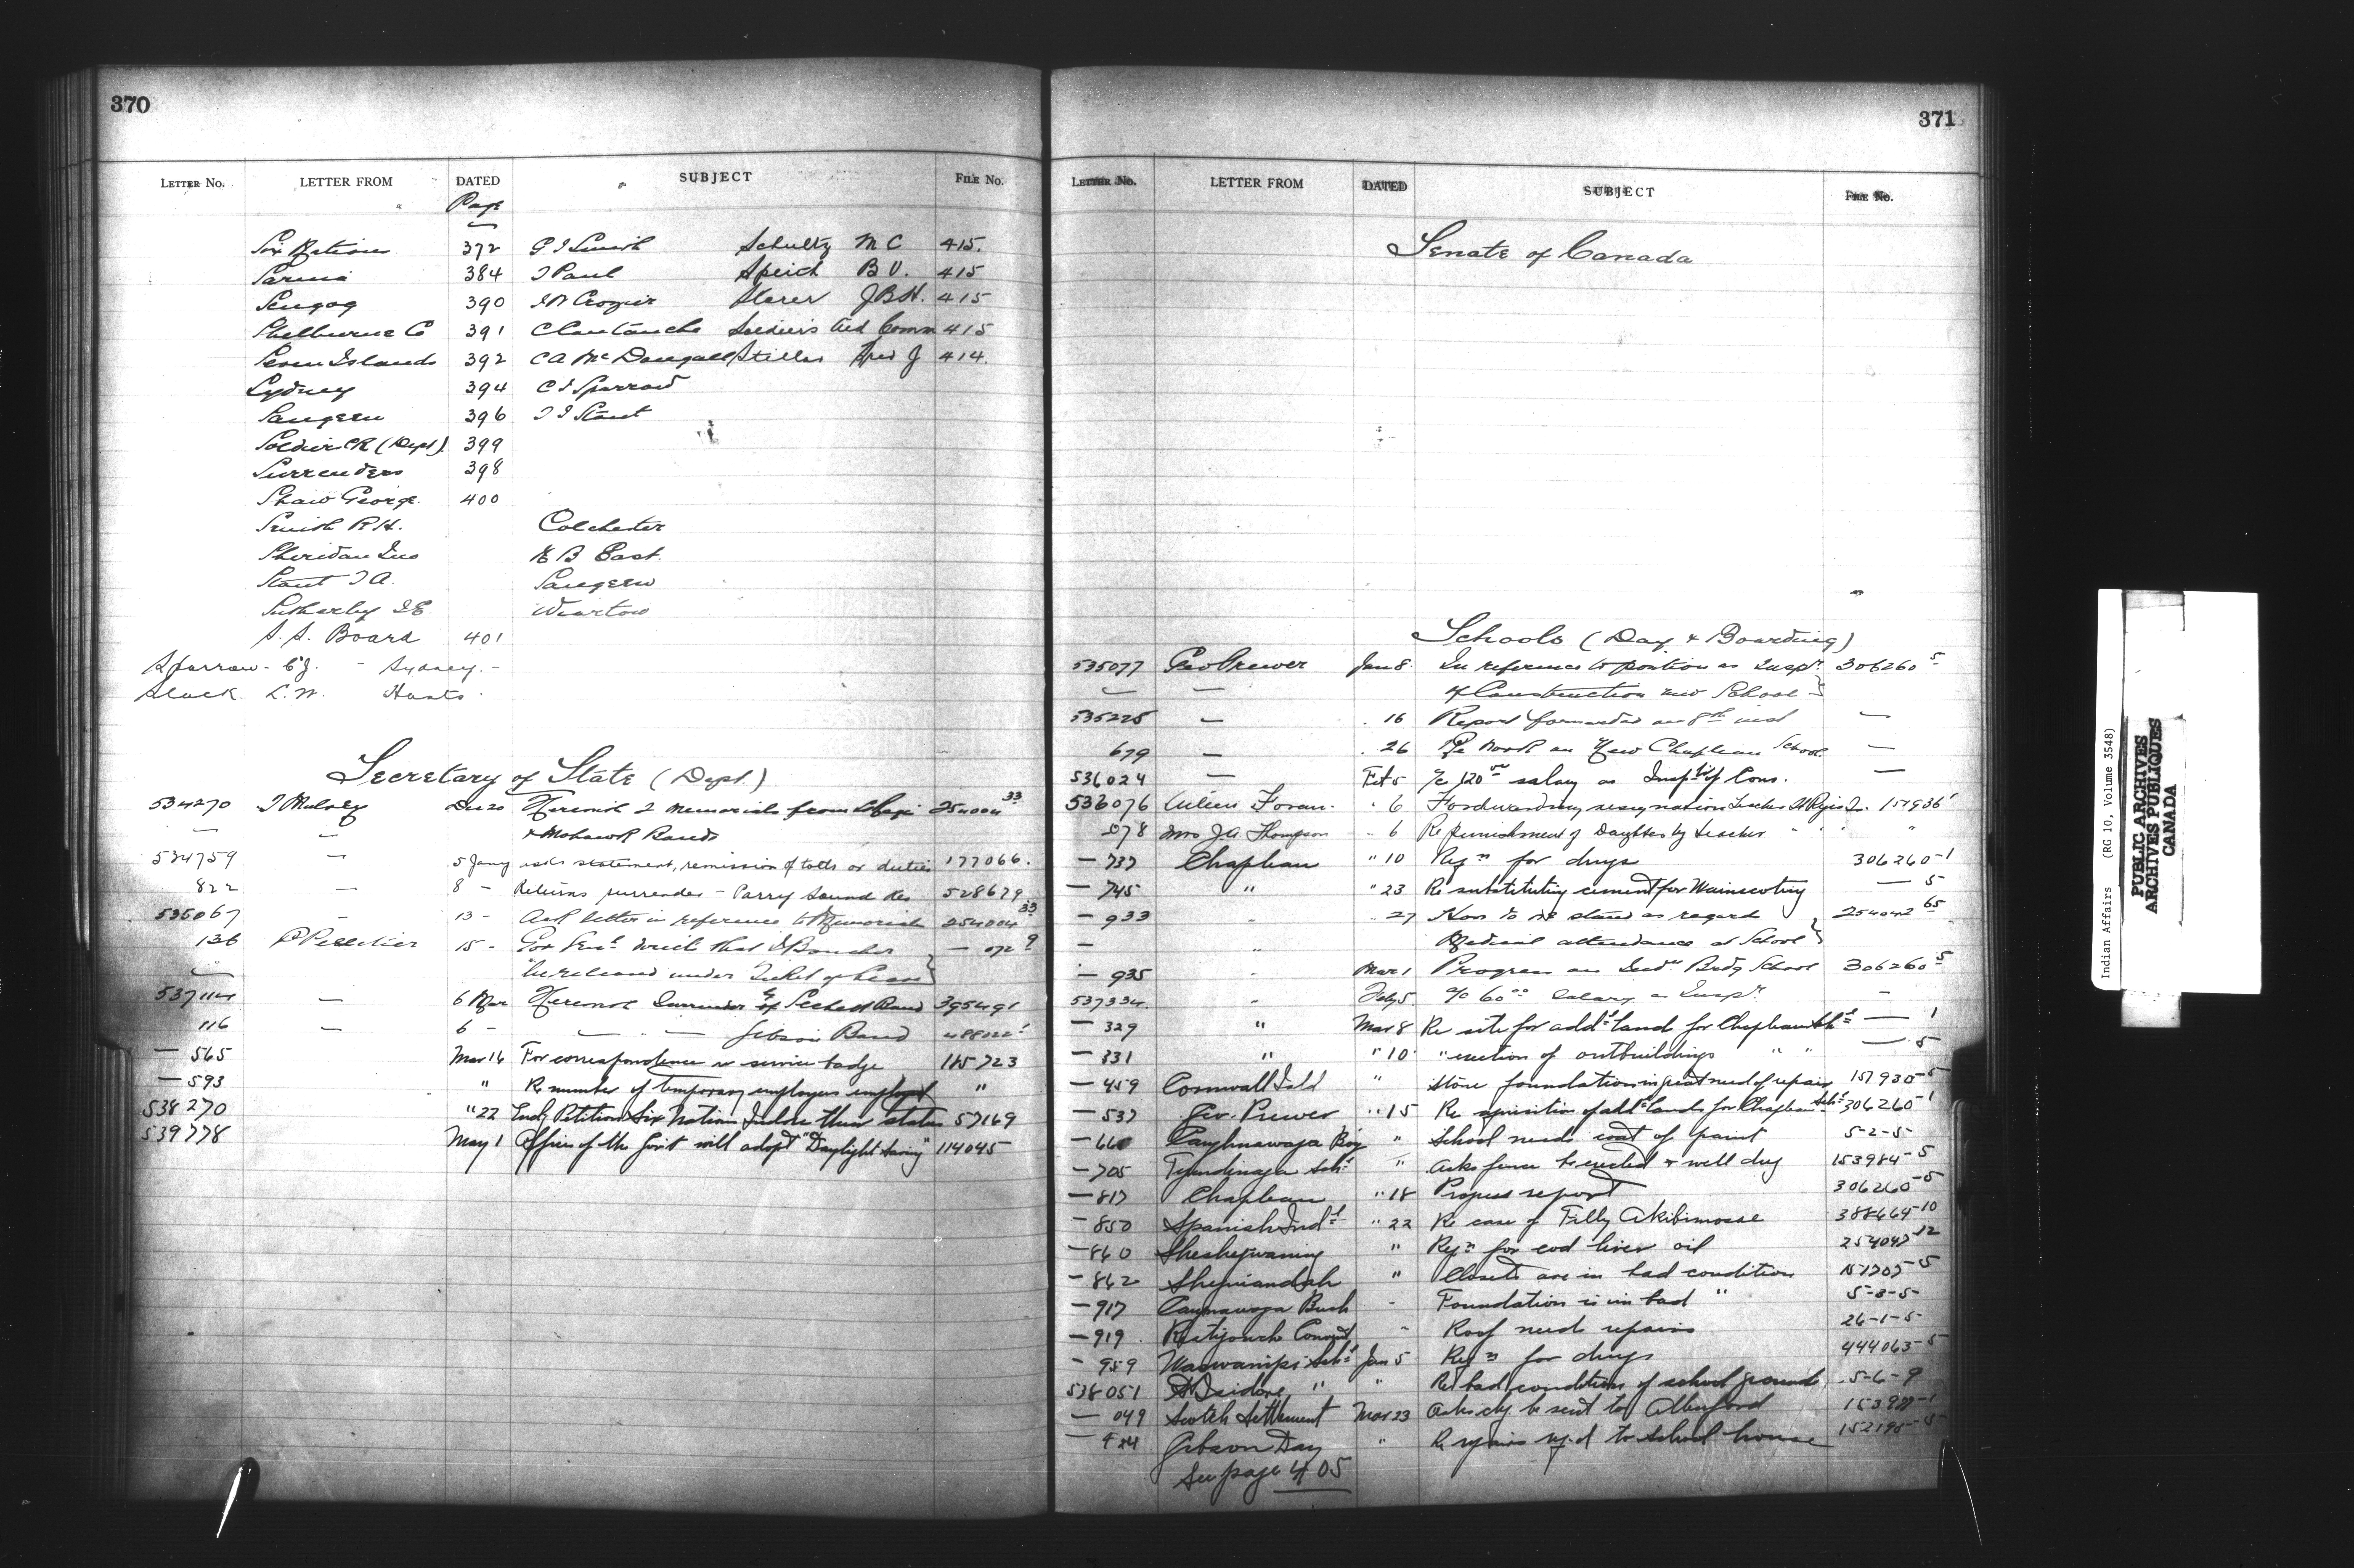 370
LETTER NO. LETTER FROM DATED SUBJECT FILE No.
Page
Six Nations 372 P I Smith Schultz M C 415.
Sarnia 384 T Paul Speich B V. 415
Scugog 390 Crozier Storer J B H. 415
Shelburne Co 391 Soldiers Aid Comm 415
Seven Islands 392 C A McDougall Stiller J 414.
Sydney 394 C J Sparrow
Saugeen 396 T I Stout
Soldier (Dept) 399
Surrenders 398
Shaw George 400
Smith R H. Colchester
Sheridan Jno N B East.
Stout T A. Saugeen
Sutherby Wiarton
S. S. Board 401
Sparrow - C J. - Sydney. -
Slack L. W. Hants.
Secretary of State (Dept.)
534270 T Mulvey Dec 20 Herewith 2 Memorials from St Regis 254004 33
— — & Mohawk Bands
534759 — 5 Jany asks statement, remission of tolls or duties 177066.
822 — 8 - Returns surrender - Parry Sound Res 528679
535067 - 13 - Ack letter in reference to Memorials 254004 33
136 P Pelletier 15 - Gov Genl that Boucher — 072 9
— be released under Ticket of Leave
537114 — 6 Mar Herewith Surrender of Sechelt Band 395491
116 — 6 - — — Gibson Band
— 565 Mar 14 For correspondence re service badge 165723
— 593 " Re number of temporary employees employed "
538270 " 22 Encl. Petition Six Nation Inds re their status 57169
539778 May 1 Offices of the Govt will adopt "Daylight Saving" 114045
371
LETTER NO. LETTER FROM DATED SUBJECT FILE NO.
Senate of Canada
Schools (Day & Boarding)
535077 Geo Prewer Jan 8. In reference to position as Inspr 306260 5
— — of Construction new School
535225 — . 16 Report forwarded on 8th inst —
679 — . 26 Re work on New Chapleau School. —
536024 — Feb 5 a/c 120 00 salary as Insptr of Cons. —
536076 Foran. " 6 Forwarding resignation teacher St Regis
078 Mrs J A Thompson " 6 Re punishment of Daughter by teacher " " "
— 737 Chapleau " 10 Reqn for drugs 306260-1
— 745 " " 23 Re substituting cement for Wainscoting — 5
— 933 " . 27 How to stand as regard 254042 65
— " Medical attendance at School
— 935 " Mar 1 Progress on Indn Brdg School 306260 5
537334. " Feb 5. a/c 60 00 Salary as Inspr. —
— 329 " Mar 8 Re site for addl land for Chapleau Schl — 1
— 331 " " 10 " erection of outbuildings " " — 5
— 459 Cornwall Isld " Stone foundation in great need of repairs 157930-5
— 537 Geo. Prewer " 15 Re aquisition of addl lands for Chapleau Schl 306260-1
— 66 Caughnawaga Boy " School needs coat of paint 5-2-5-
— 705 Tyendinaga Schl " Asks fence be erected & well dug 153984-5
— 817 Chapleau " 18 Progress report 306260-5
— 850 Spanish Indl " 22 Re case of Tilly Akibimose 388664-10
— 860 Sheshegwaning " Reqn for cod liver oil 254047-12
— 862 Sheguiandah " Closets are in bad condition 151707-5
— 917 Caugnawaga Bush - Foundation is in bad " 5-3-5-
— 919 Restigouche Convent " Roof needs repairs 26-1-5-
— 959 Waswanipi Schl Jan 5 Reqn for drugs 444063-5
538051 St Isidore " " Re bad condition of school grounds 5-6-9
— 049 Scotch Settlement Mar 23 Asks chq. be sent to Allenford
— 424 Gibson Day " Re repairs reqd to school house
See page 405
Indian Affairs (RG 10, Volume 3548)
PUBLIC ARCHIVES
ARCHIVES PUBLIQUES
CANADA